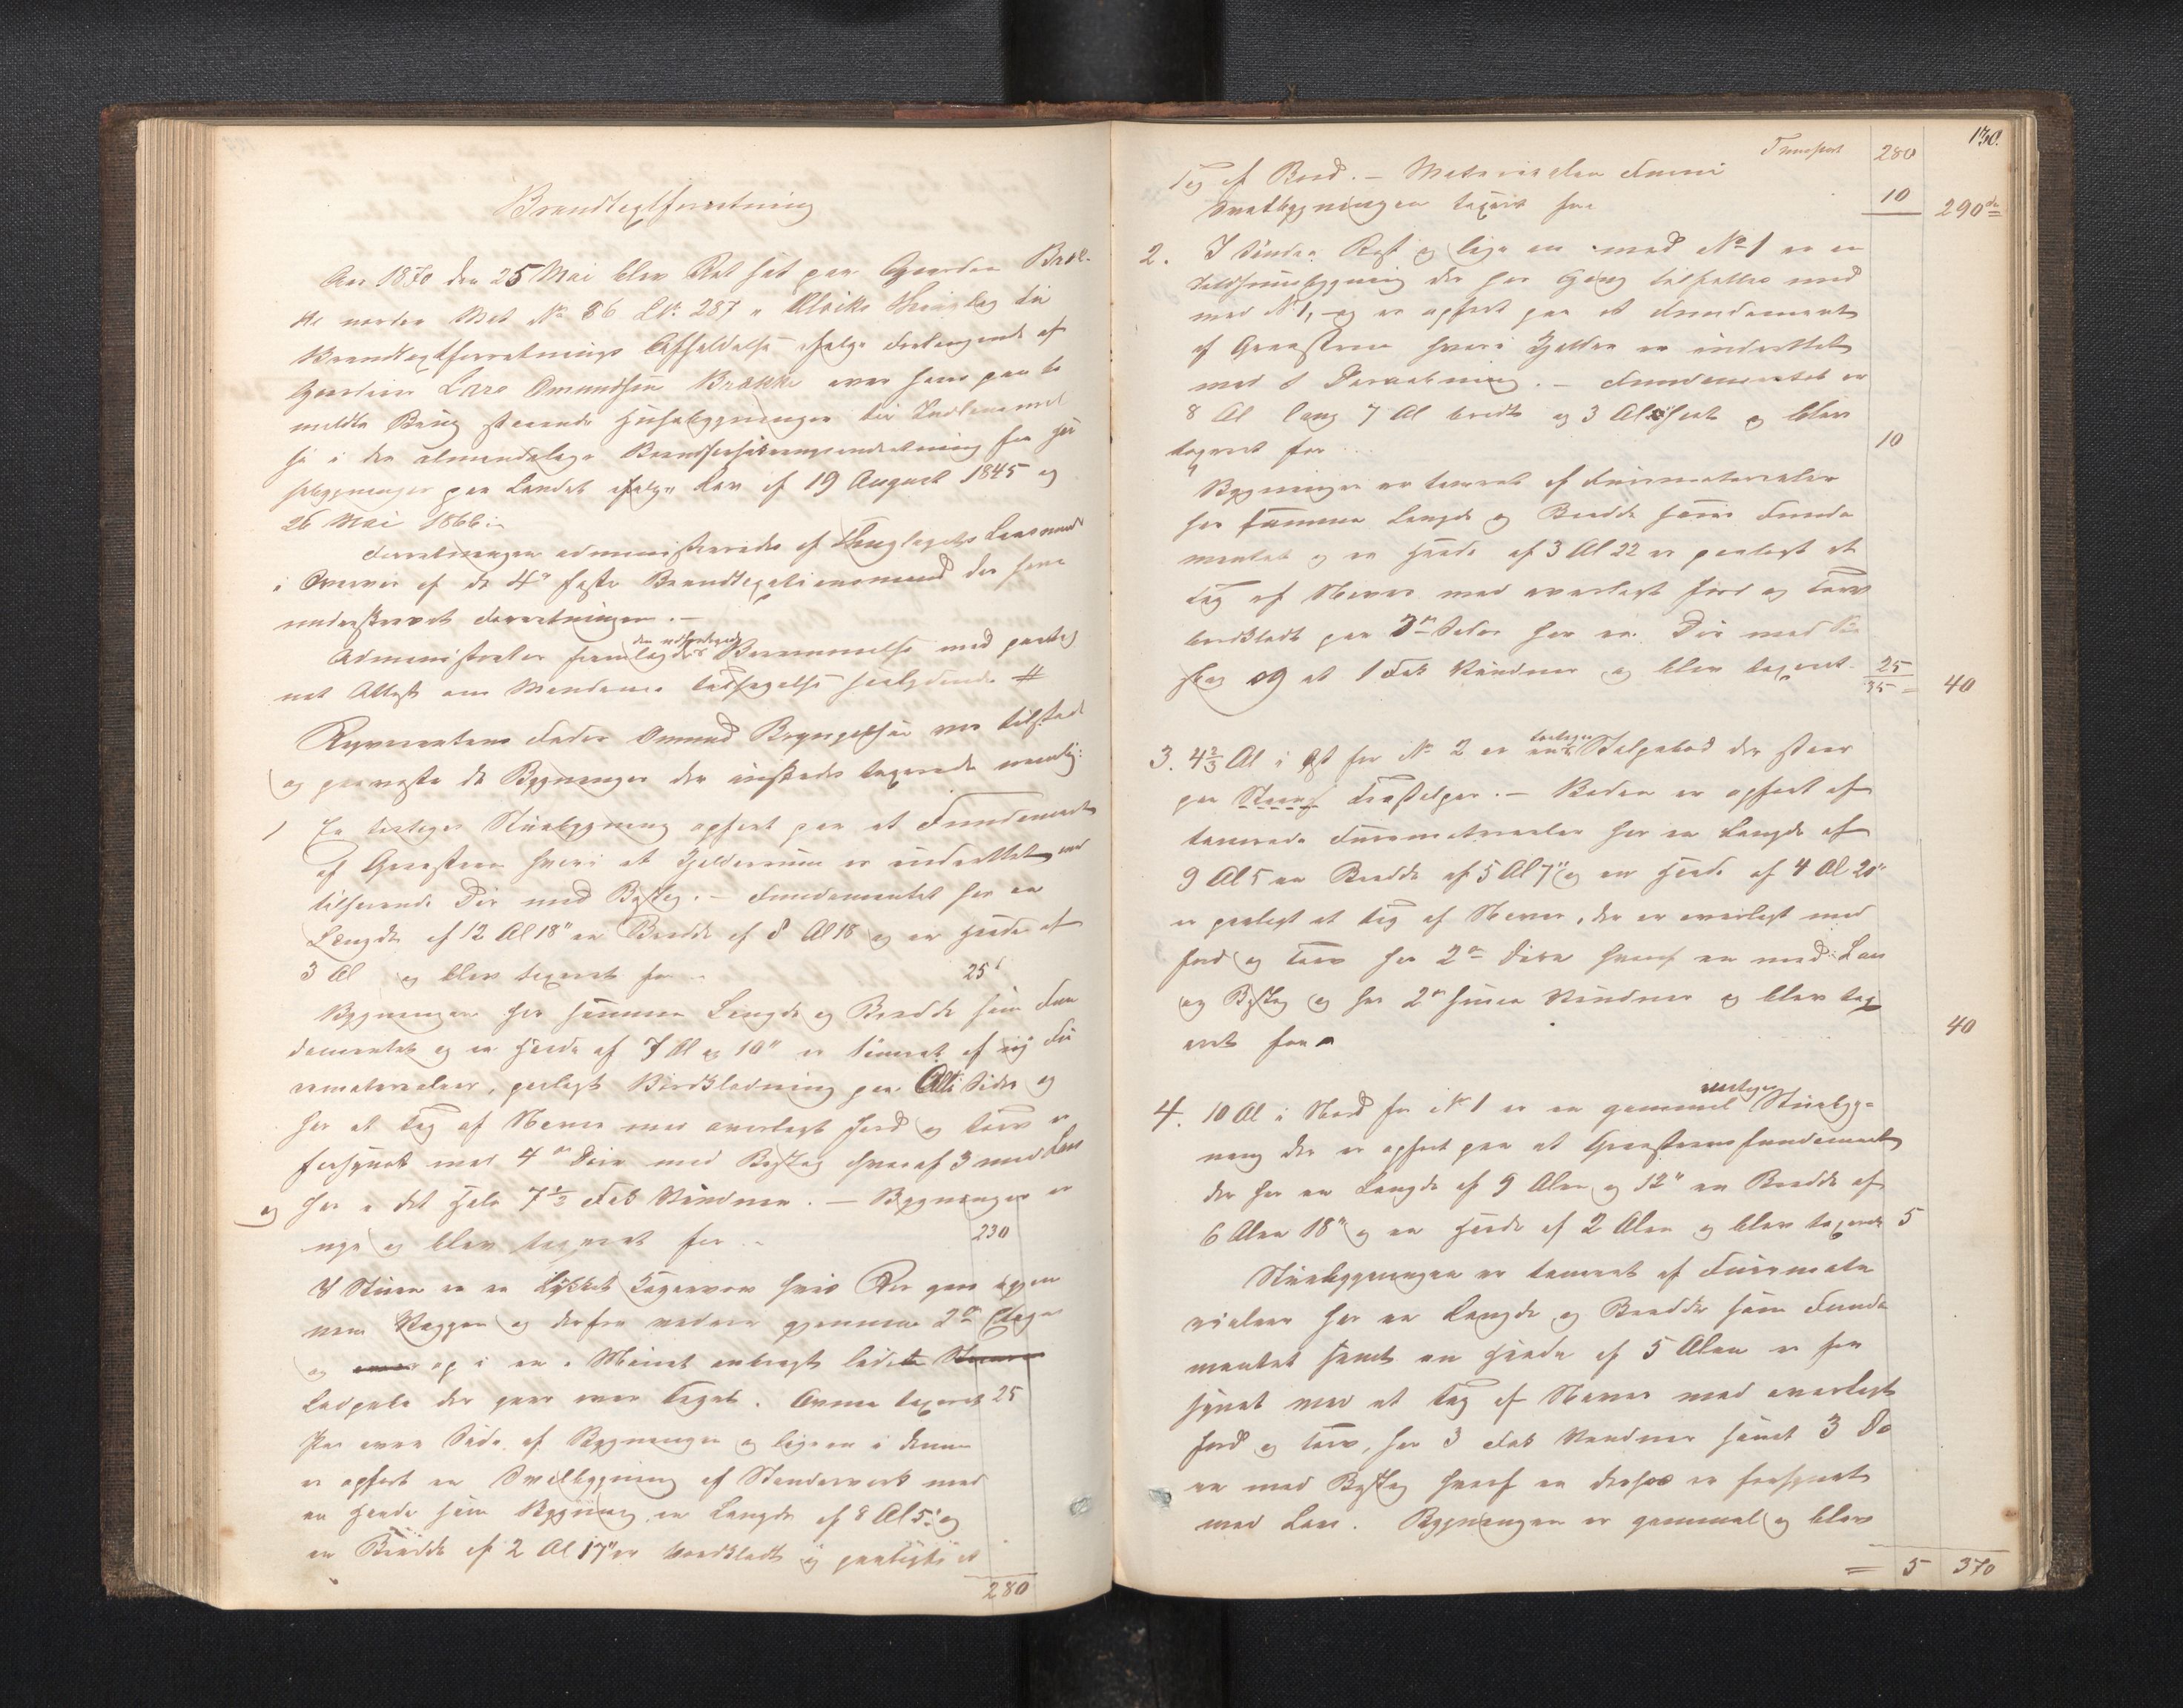 Brandtaxtforretning
Aar 1870 den 25 Mai blev Ret sat paa Gaarden Bræk-
ke nordre Mat No 86 Lb: 287 i Ulviks Thinglag til
Brandtaxtforretnings Afholdelse ifølge Forlangende af
Gaardeier Lars Omundsen Brække over hans paa be
meldte Brug staaende Huusebygninger til Indlemmel
se i den almindelige Brandforsikringsindretning for Hu
sebygninger paa Landet ifølge Lov af 19 August 1845 og
26 Mai 1866.
Forretningen administreredes af Thinglagets Lensmand
i Overvær af de 4re faste Brandtaxtationsmænd der have
underskrevet Forretningen. —
Administrator fremlagde den udfærdigede Berammelse med paateg
net Attest om Mændenes Tilsigelse saalydende #
Reqvirentens Fader Omund Brynjelsen var tilstede
og paaviste de Bygninger der ønskedes taxerede nemlig:
1 En toetages Stuebygning opført paa et Fundament
af Graasteen hvori et Kjelderrum er indrettet med
tilhørende Dør med Beslag. — Fundamentet har en
Længde af 12 Al 18" en Bredde af 8 Al 18 og en Høide af
3 Al og blev taxeret for 25
Bygningen har samme Længde og Bredde som Fun
damentet og en Høide af 7 Al og 10" er tømret af ny Fu
rematerialer, paalagt Bordklædning paa Alle Sider og
har et Tag af Næver med overlagt Jord og Torv er
forsynet med 4re Døre med Beslag hvoraf 3 med Laas
og har i det Hele 7½ Fag Vinduer. — Bygningen er
nye og blev taxeret for 230
I Stuen er en Kakkelovn hvis Rør gaar igjen
nem Væggen og derfra videre gjennem 2de Etager
og op i en i Mønet anbragt
Ladpibe der gaar over Taget. Ovnen taxeret 25
Paa øvre Side af Bygningen og ligeen i denne
er opført en Svalbygning af Standerværk med
en Høide som Bygning en Længde af 8 Al 5" og
en Bredde af 2 Al 17" er bordklædt og paalagt et
280
130.
Transport 280
Tag af Bord. — Materialer Furu
Svalbygningen taxeres for 10 290
2. I Sønder Øst og lige en med No 1 er en
Ildhuusbygning der har Gang tilfælles med
med No 1, og er opført paa et Fundament
af Graasteen hvori Kjelder er indrettet
med Døraabning. — Fundamentet er
8 Al lang 7 Al bredt og 3 Al høit og blev
taxeret for 10
Bygningen er tømret af Furumaterialer
har samme Længde og Bredde som Funda
mentet og en Høide af 3 Al 22 er paalagt et
Tag af Næver med overlagt Jord og Torv
bordklædt paa 3de Sider har en Dør med Be
slag og et 1 Fag Vinduer og blev taxeret 25
35 = 40
3. 4⅔ Al i Øst for No 2 er en toetages Stolpebod der staar
paa Steens Træstolper. — Boden er opført af
tømrede Furumaterialer har en Længde af
9 Al 5 en Bredde af 5 Al 7" og en Høide af 4 Al 20"
er paalagt et Tag af Næver, der er overlagt med
Jord og Torv har 2de Døre hvoraf en med Laas
og Beslag og har 2de smaa Vinduer og blev tax
eret for 40
4. 10 Al i Nord for No 1 er en gammel eenetages Stuebyg-
ning der er opført paa et Graasteensfundament
der har en Længde af 9 Alen og 12" en Bredde af
6 Alen 18" og en Høide af 2 Alen og blev taxeret 5
Stuebygningen er tømret af Furumate
rialer har en Længde og Bredde som Funda
mentet samt en Høide af 5 Alen er for
synet med et Tag af Næver med overlagt
Jord og Torv, har 3 Fag Vinduer samt 3 Dø
re med Beslag hvoraf en desforuden er forsynet
med Laas. Bygningen er gammel og blev
= 5 370